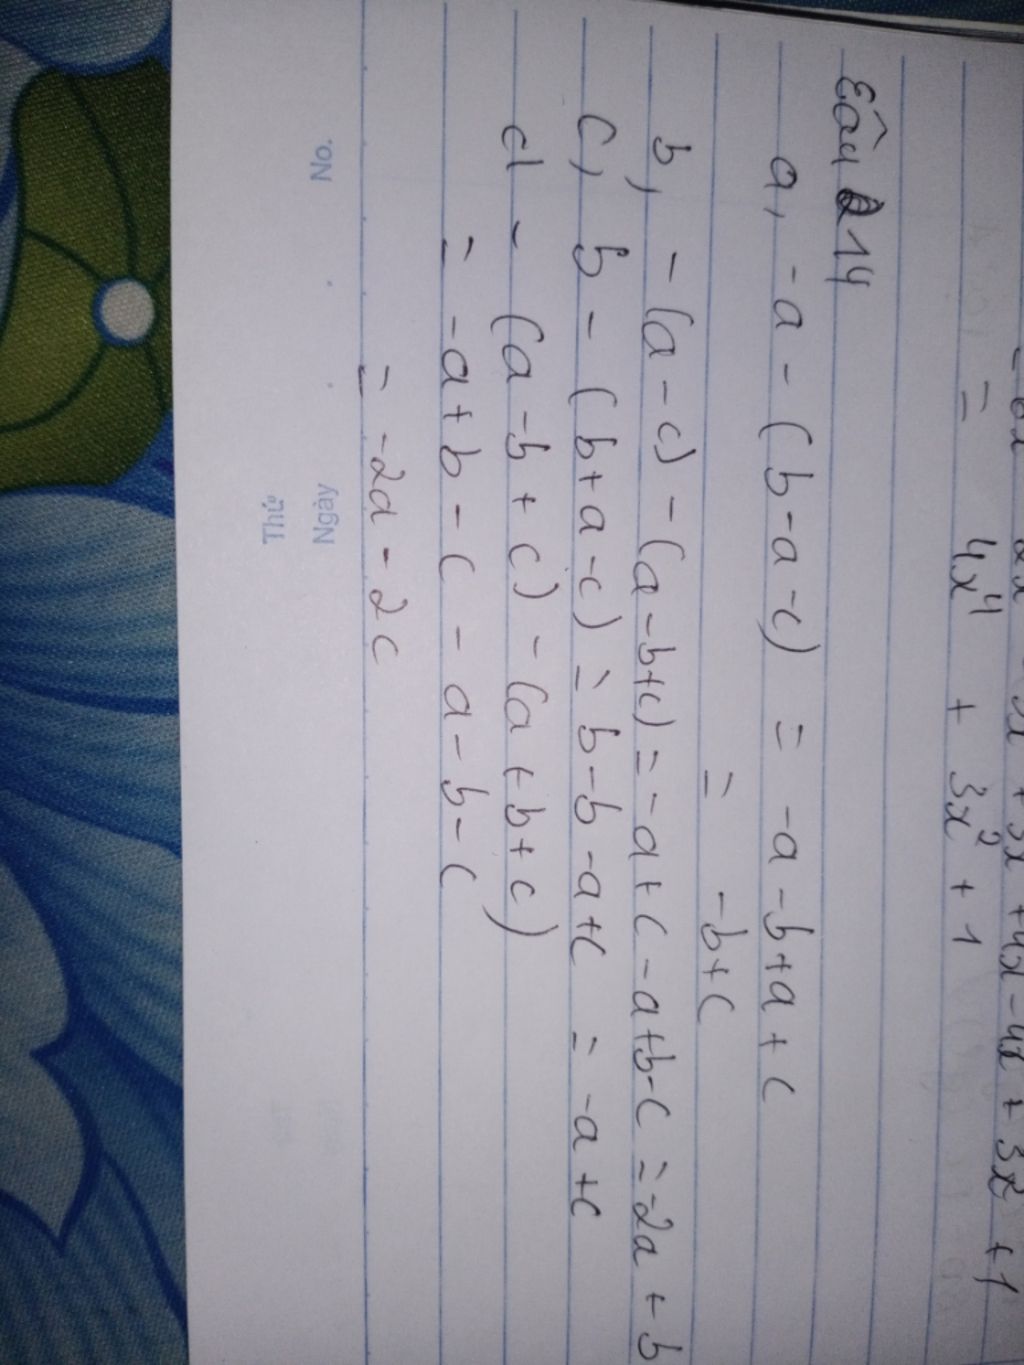 = 4x⁴ + 3x² + 1
Câu 14
a, -a - (b-a-c) = -a-b+a+c
= -b+c
b, -(a-c) - (a-b+c) = -a+c-a+b-c = -2a+b
c, b - (b+a-c) = b-b-a+c = -a+c
d - (a-b+c) - (a+b+c)
= -a+b-c-a-b-c
= -2a-2c
No.
Thứ
Ngày